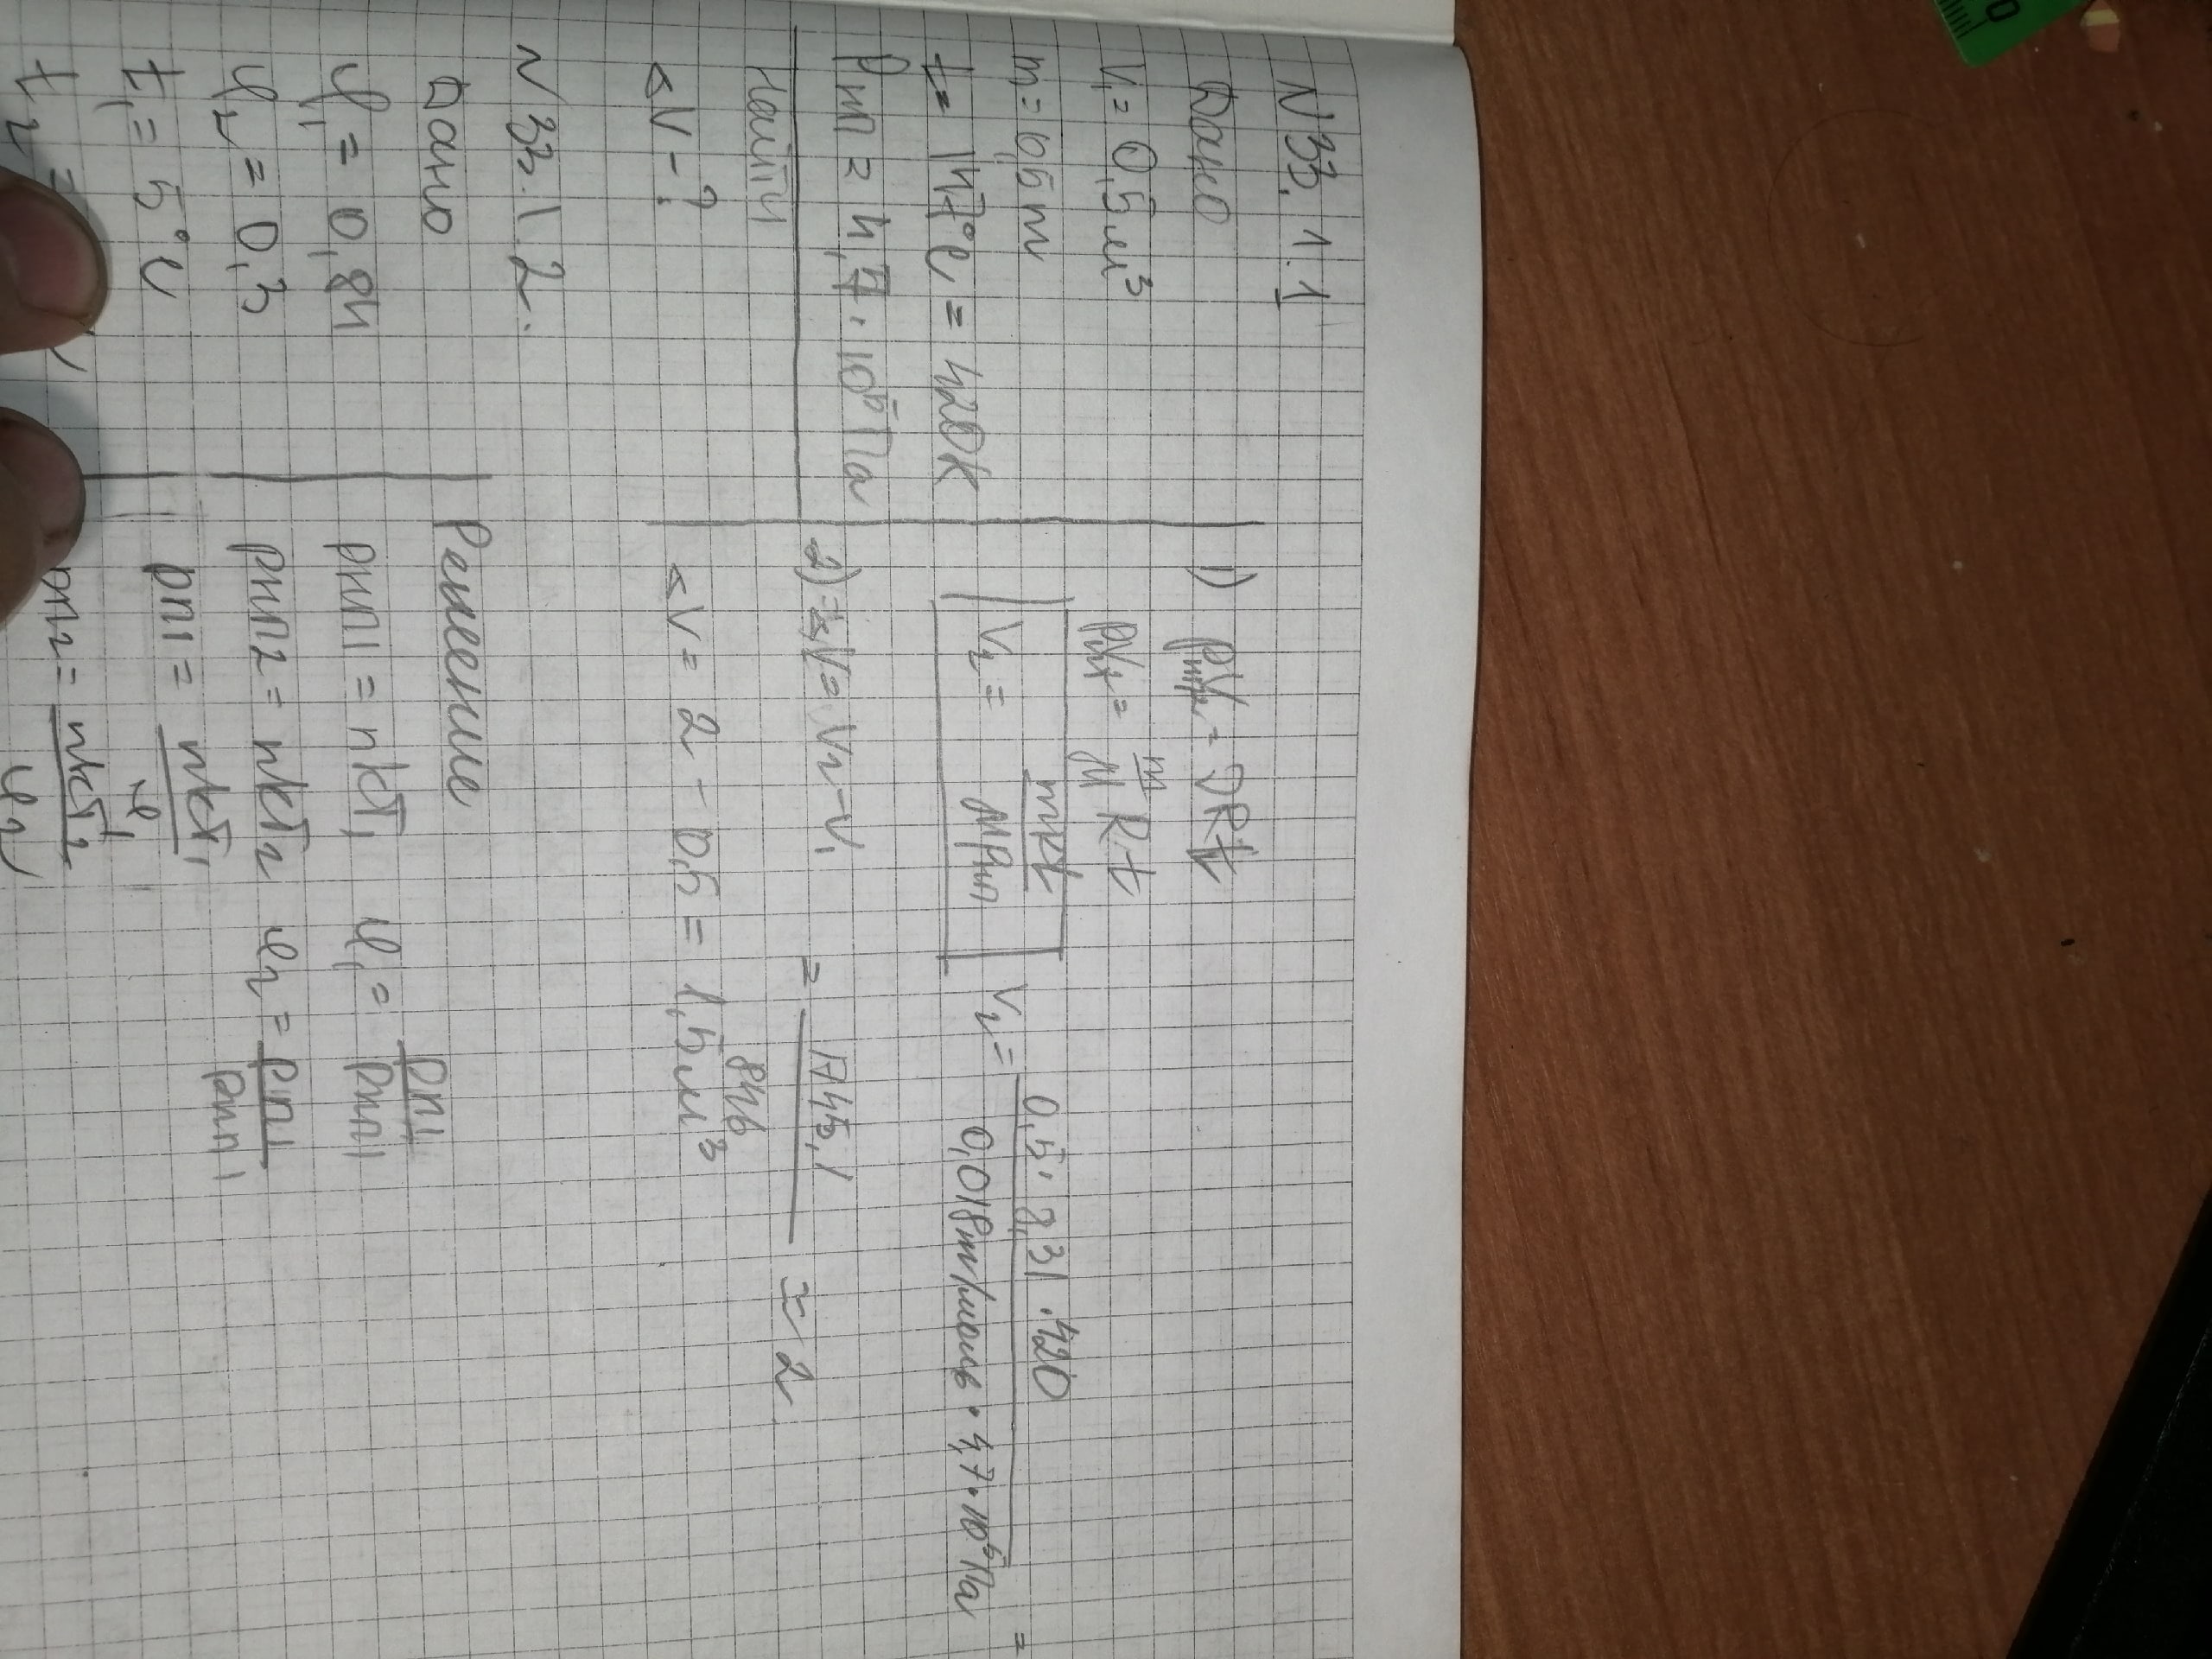 N 33.1.1
Дано
V₁ = 0,5 м³
m = 0,5 кг
t = 147°C = 420K
Pнп = 4,7 · 10⁵ Па
Найти
<V - ?
1) pнпV₂ = νRt
pV₂ = m/M Rt
V₂ = mRt/MPнп V₂ = 0,5 · 8,31 · 420 / 0,018кг/моль · 4,7 · 10⁵Па =
= 1745,1 / 846 ≈ 2
2) V = V₂ - V₁
<V = 2 - 0,5 = 1,5 м³
N 33.1.2.
Дано
φ₁ = 0,84
φ₂ = 0,3
t₁ = 5°C
t₂ =
Решение
pнп1 = nkT₁ φ₁ = pп1/pнп1
pнп2 = nkT₂ φ₂ = pп1/pнп1
pп1 = nkT₁/φ₁
pп2 = nkT₂/φ₂